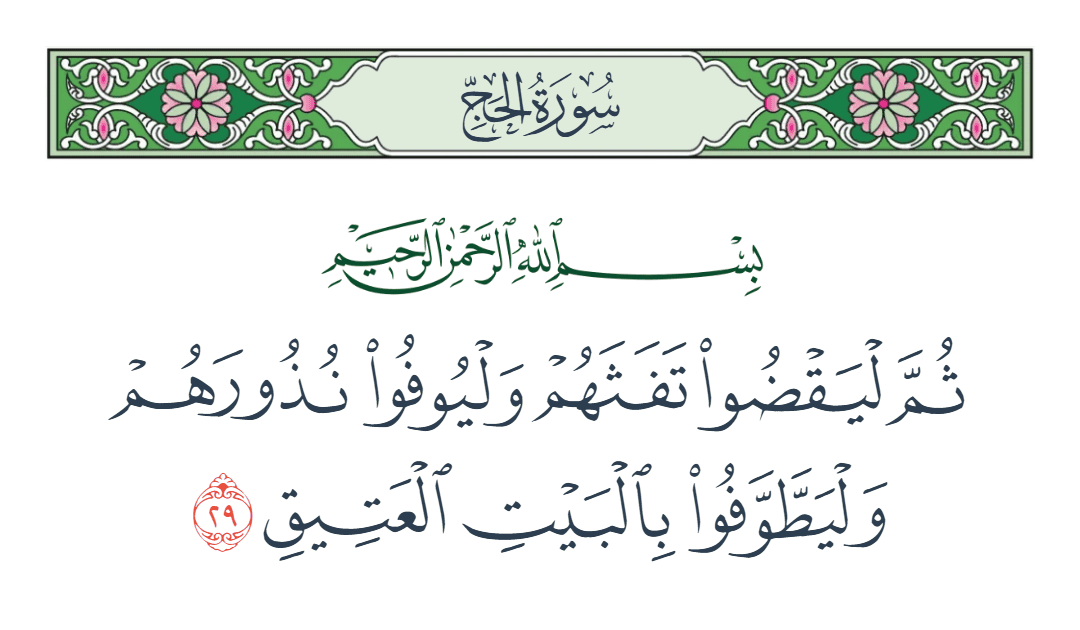 سُورَةُ الحَجِّ
بِسْمِ ٱللَّهِ ٱلرَّحْمَٰنِ ٱلرَّحِيمِ
ثُمَّ لْيَقْضُوا۟ تَفَثَهُمْ وَلْيُوفُوا۟ نُذُورَهُمْ
وَلْيَطَّوَّفُوا۟ بِٱلْبَيْتِ ٱلْعَتِيقِ ٢٩